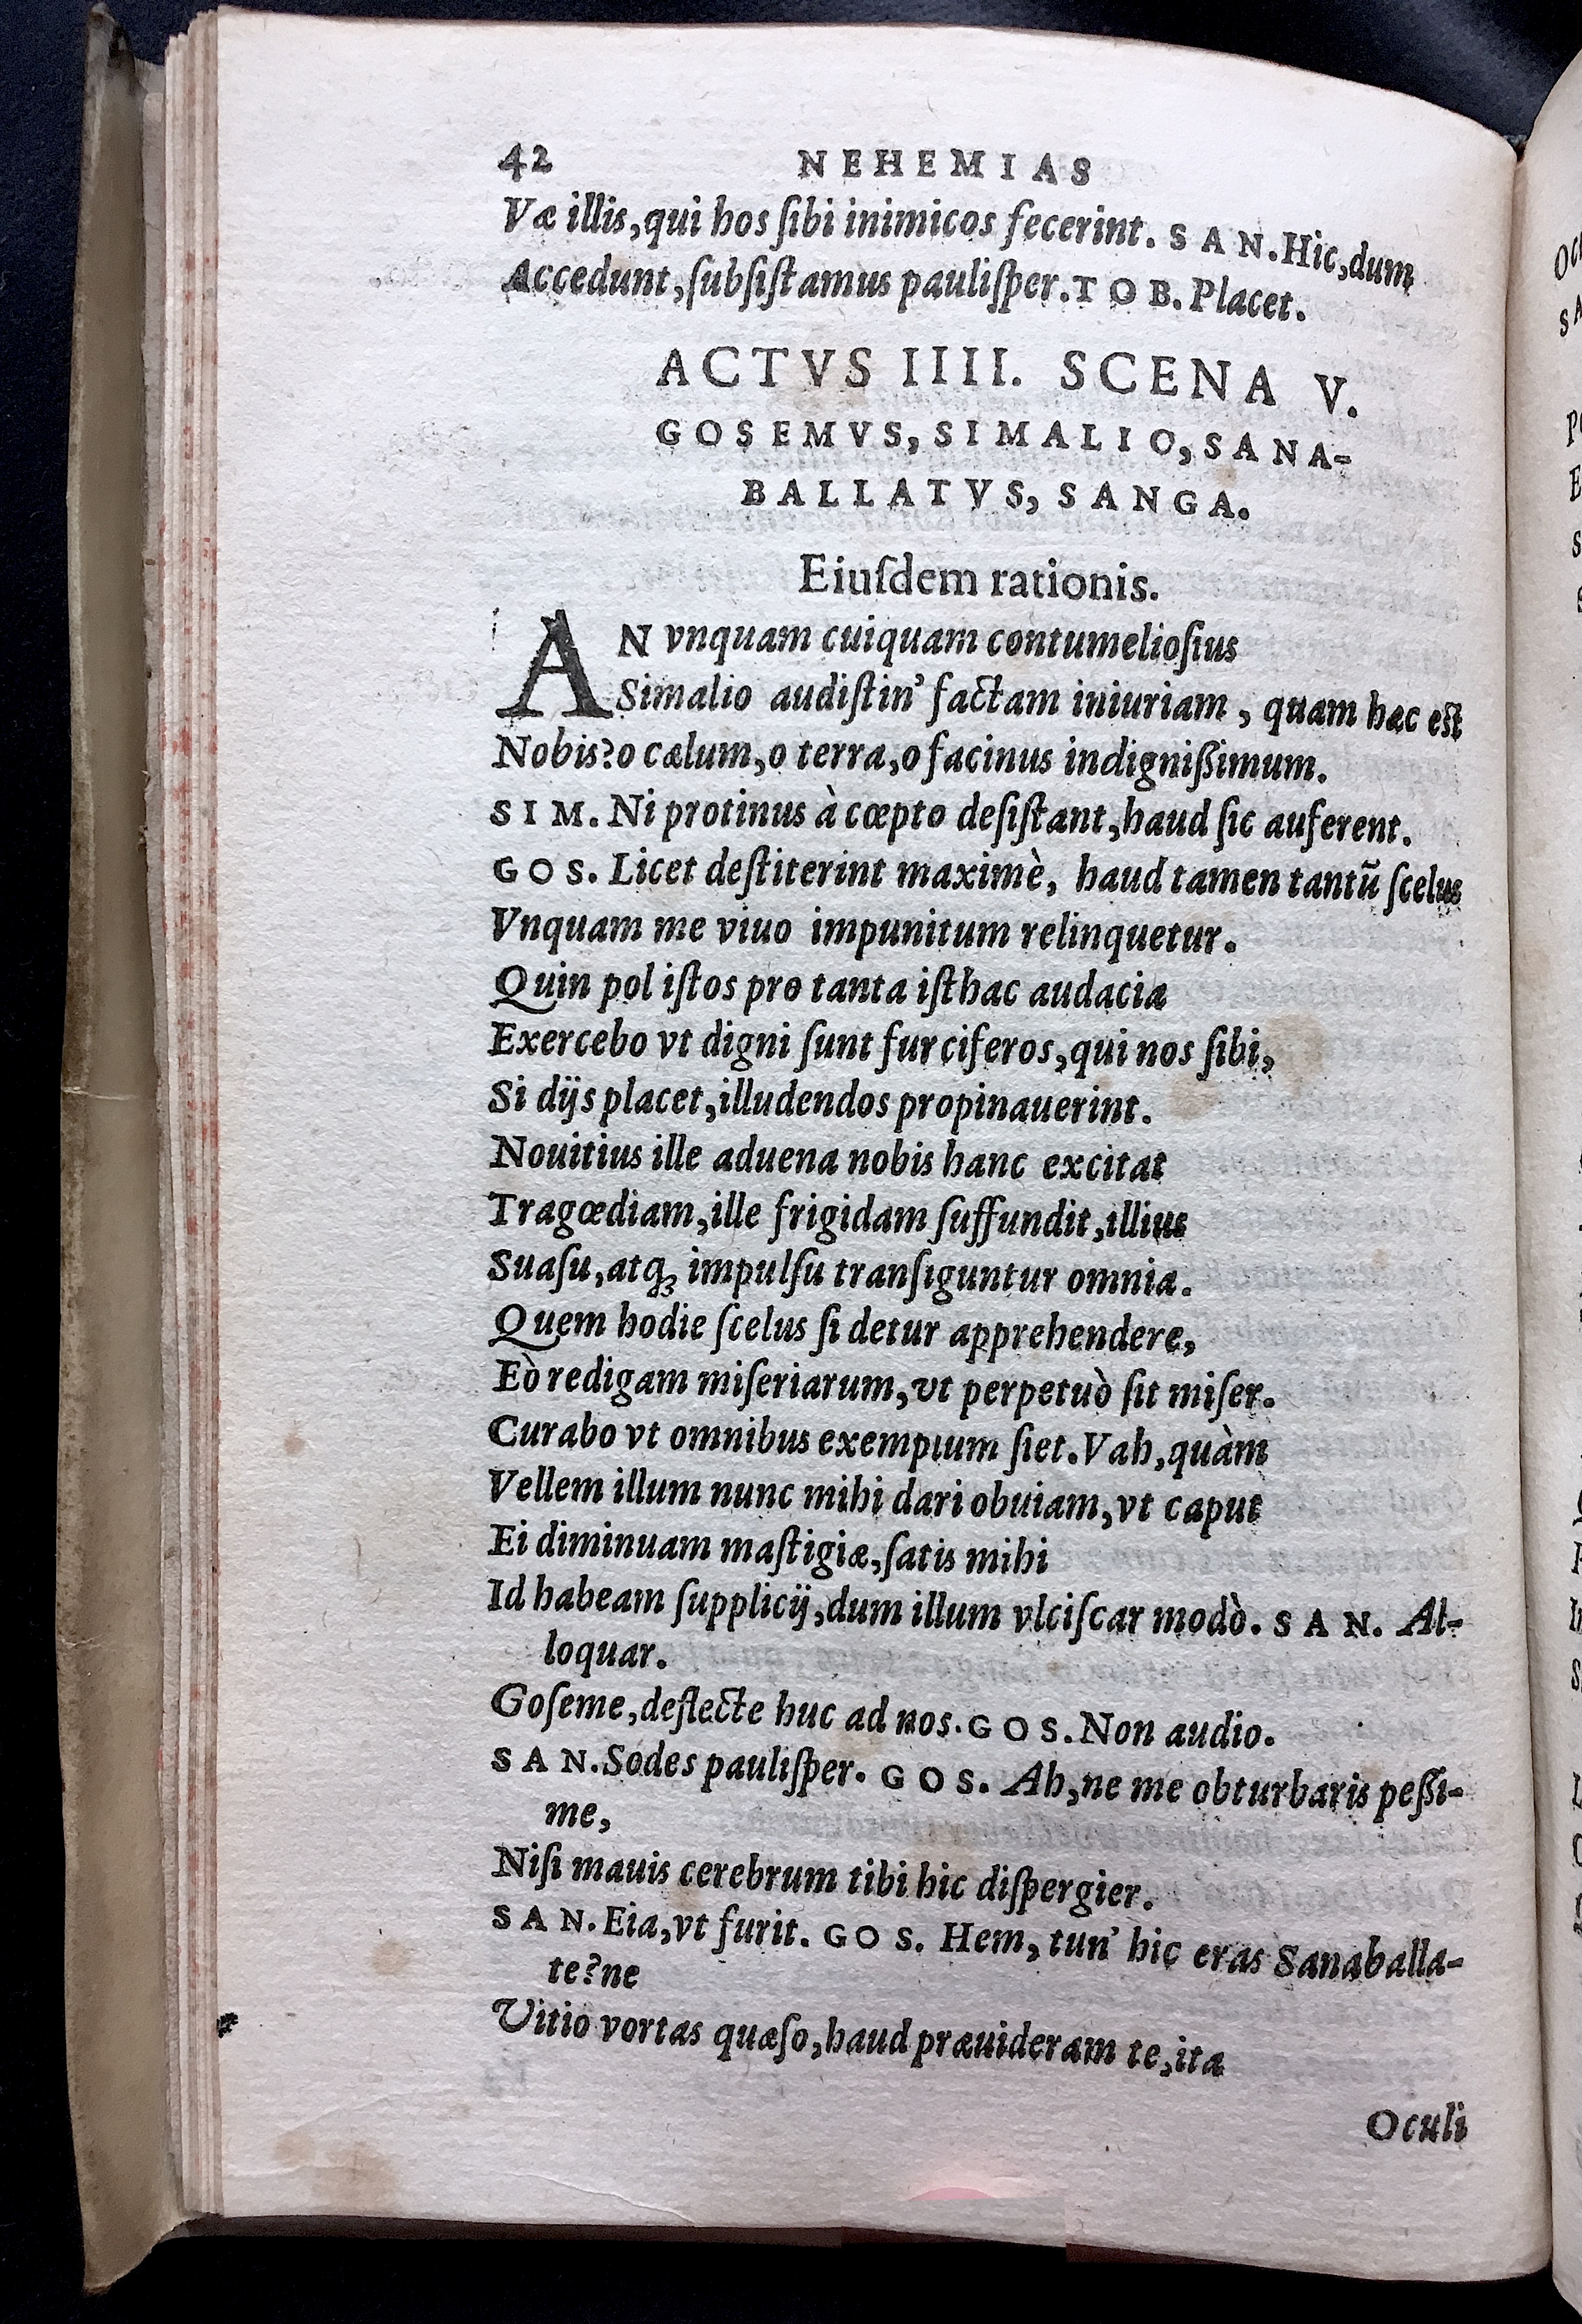 42 NEHEMIAS
Væ illis, qui hos ſibi inimicos fecerint. SAN. Hic, dum
Accedunt, ſubſiſtamus pauliſper. TOB. Placet.
ACTVS IIII. SCENA V.
GOSEMVS, SIMALIO, SANA-
BALLATVS, SANGA.
Eiuſdem rationis.
AN vnquam cuiquam contumelioſius
Simalio audiſtin' factam iniuriam, quam hac est
Nobis? o cælum, o terra, o facinus indignißimum.
SIM. Ni protinus à cœpto deſiſtant, haud ſic auferent.
GOS. Licet deſtiterint maximè, haud tamen tantũ ſcelus
Vnquam me viuo impunitum relinquetur.
Quin pol iſtos pro tanta iſthac audacia
Exercebo vt digni ſunt furciferos, qui nos ſibi,
Si dijs placet, illudendos propinauerint.
Nouitius ille aduena nobis hanc excitat
Tragœdiam, ille frigidam ſuffundit, illius
Suaſu, atq; impulſu tranſiguntur omnia.
Quem hodie ſcelus ſi detur apprehendere,
Eò redigam miſeriarum, vt perpetuò ſit miſer.
Curabo vt omnibus exemplum ſiet. Vah, quàm
Vellem illum nunc mihi dari obuiam, vt caput
Ei diminuam maſtigiæ, ſatis mihi
Id habeam ſupplicij, dum illum vlciſcar modò. SAN. Al-
loquar.
Goſeme, deflecte huc ad nos. GOS. Non audio.
SAN. Sodes pauliſper. GOS. Ah, ne me obturbaris peßi-
me,
Niſi mauis cerebrum tibi hic diſpergier.
SAN. Eia, vt furit. GOS. Hem, tun' hic eras Sanaballa-
te? ne
Vitio vortas quæſo, haud præuideram te, ita
Oculi